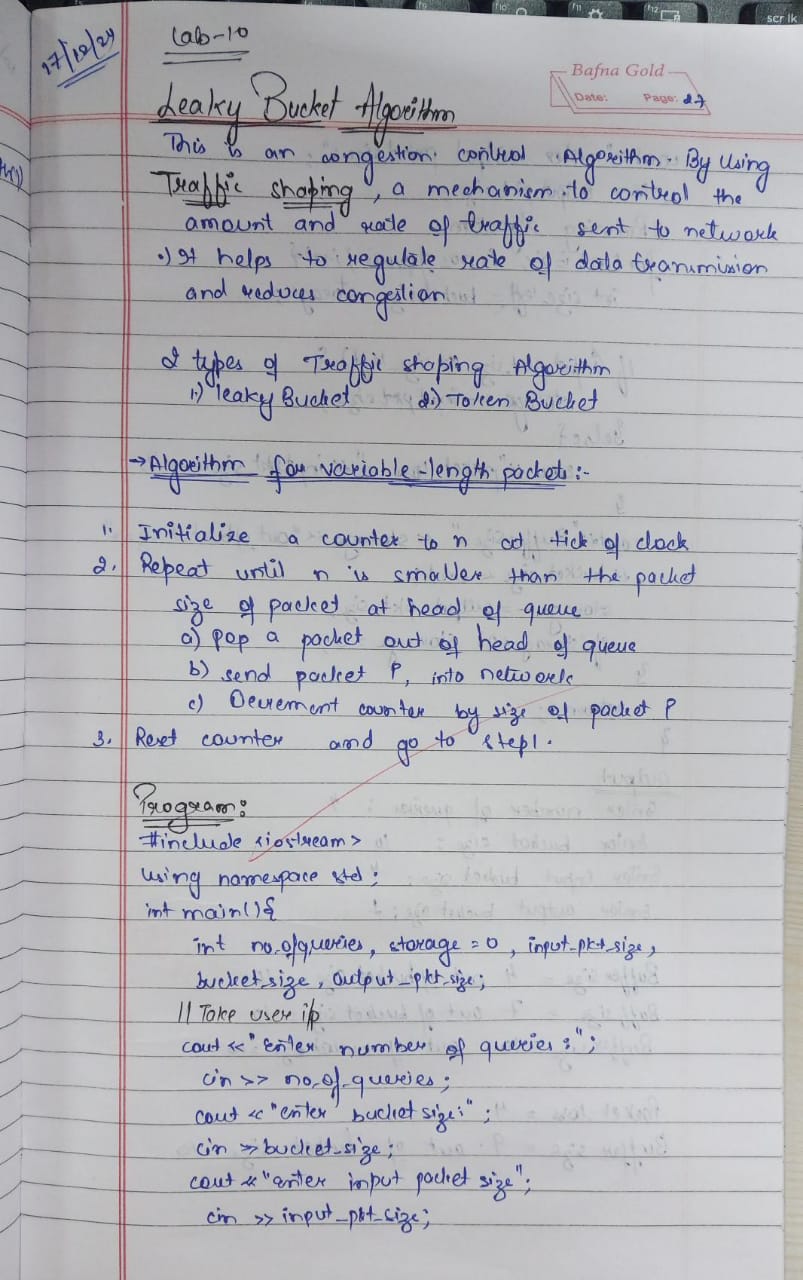 scr lk
17/12/24
Lab-10
Bafna Gold
Date: Page: 27
Leaky Bucket Algorithm
This is an congestion control Algorithm. By Using
Traffic shaping, a mechanism to control the
amount and rate of traffic sent to network
•) It helps to regulate rate of data tranmission
and reduces congestion
2 types of Traffic shaping Algorithm
1) leaky Bucket 2) Token Bucket
→ Algorithm for variable-length packets:-
1. Initialize a counter to n at tick of clock
2. Repeat until n is smaller than the packet
size of packet at head of queue
a) pop a packet out of head of queue
b) send packet P, into network
c) Decrement counter by size of packet P
3. Reset counter and go to step1.
Program:
#include <iostream>
using namespace std;
int main(){
int no.ofqueries, storage = 0, input_pkt_size,
bucket_size, output_pkt_size;
// Take user i/p
cout << "Enter number of queries:";
cin >> no_of_queries;
cout << "enter bucket size:";
cin >> bucket_size;
cout << "enter input packet size";
cin >> input_pkt_size;